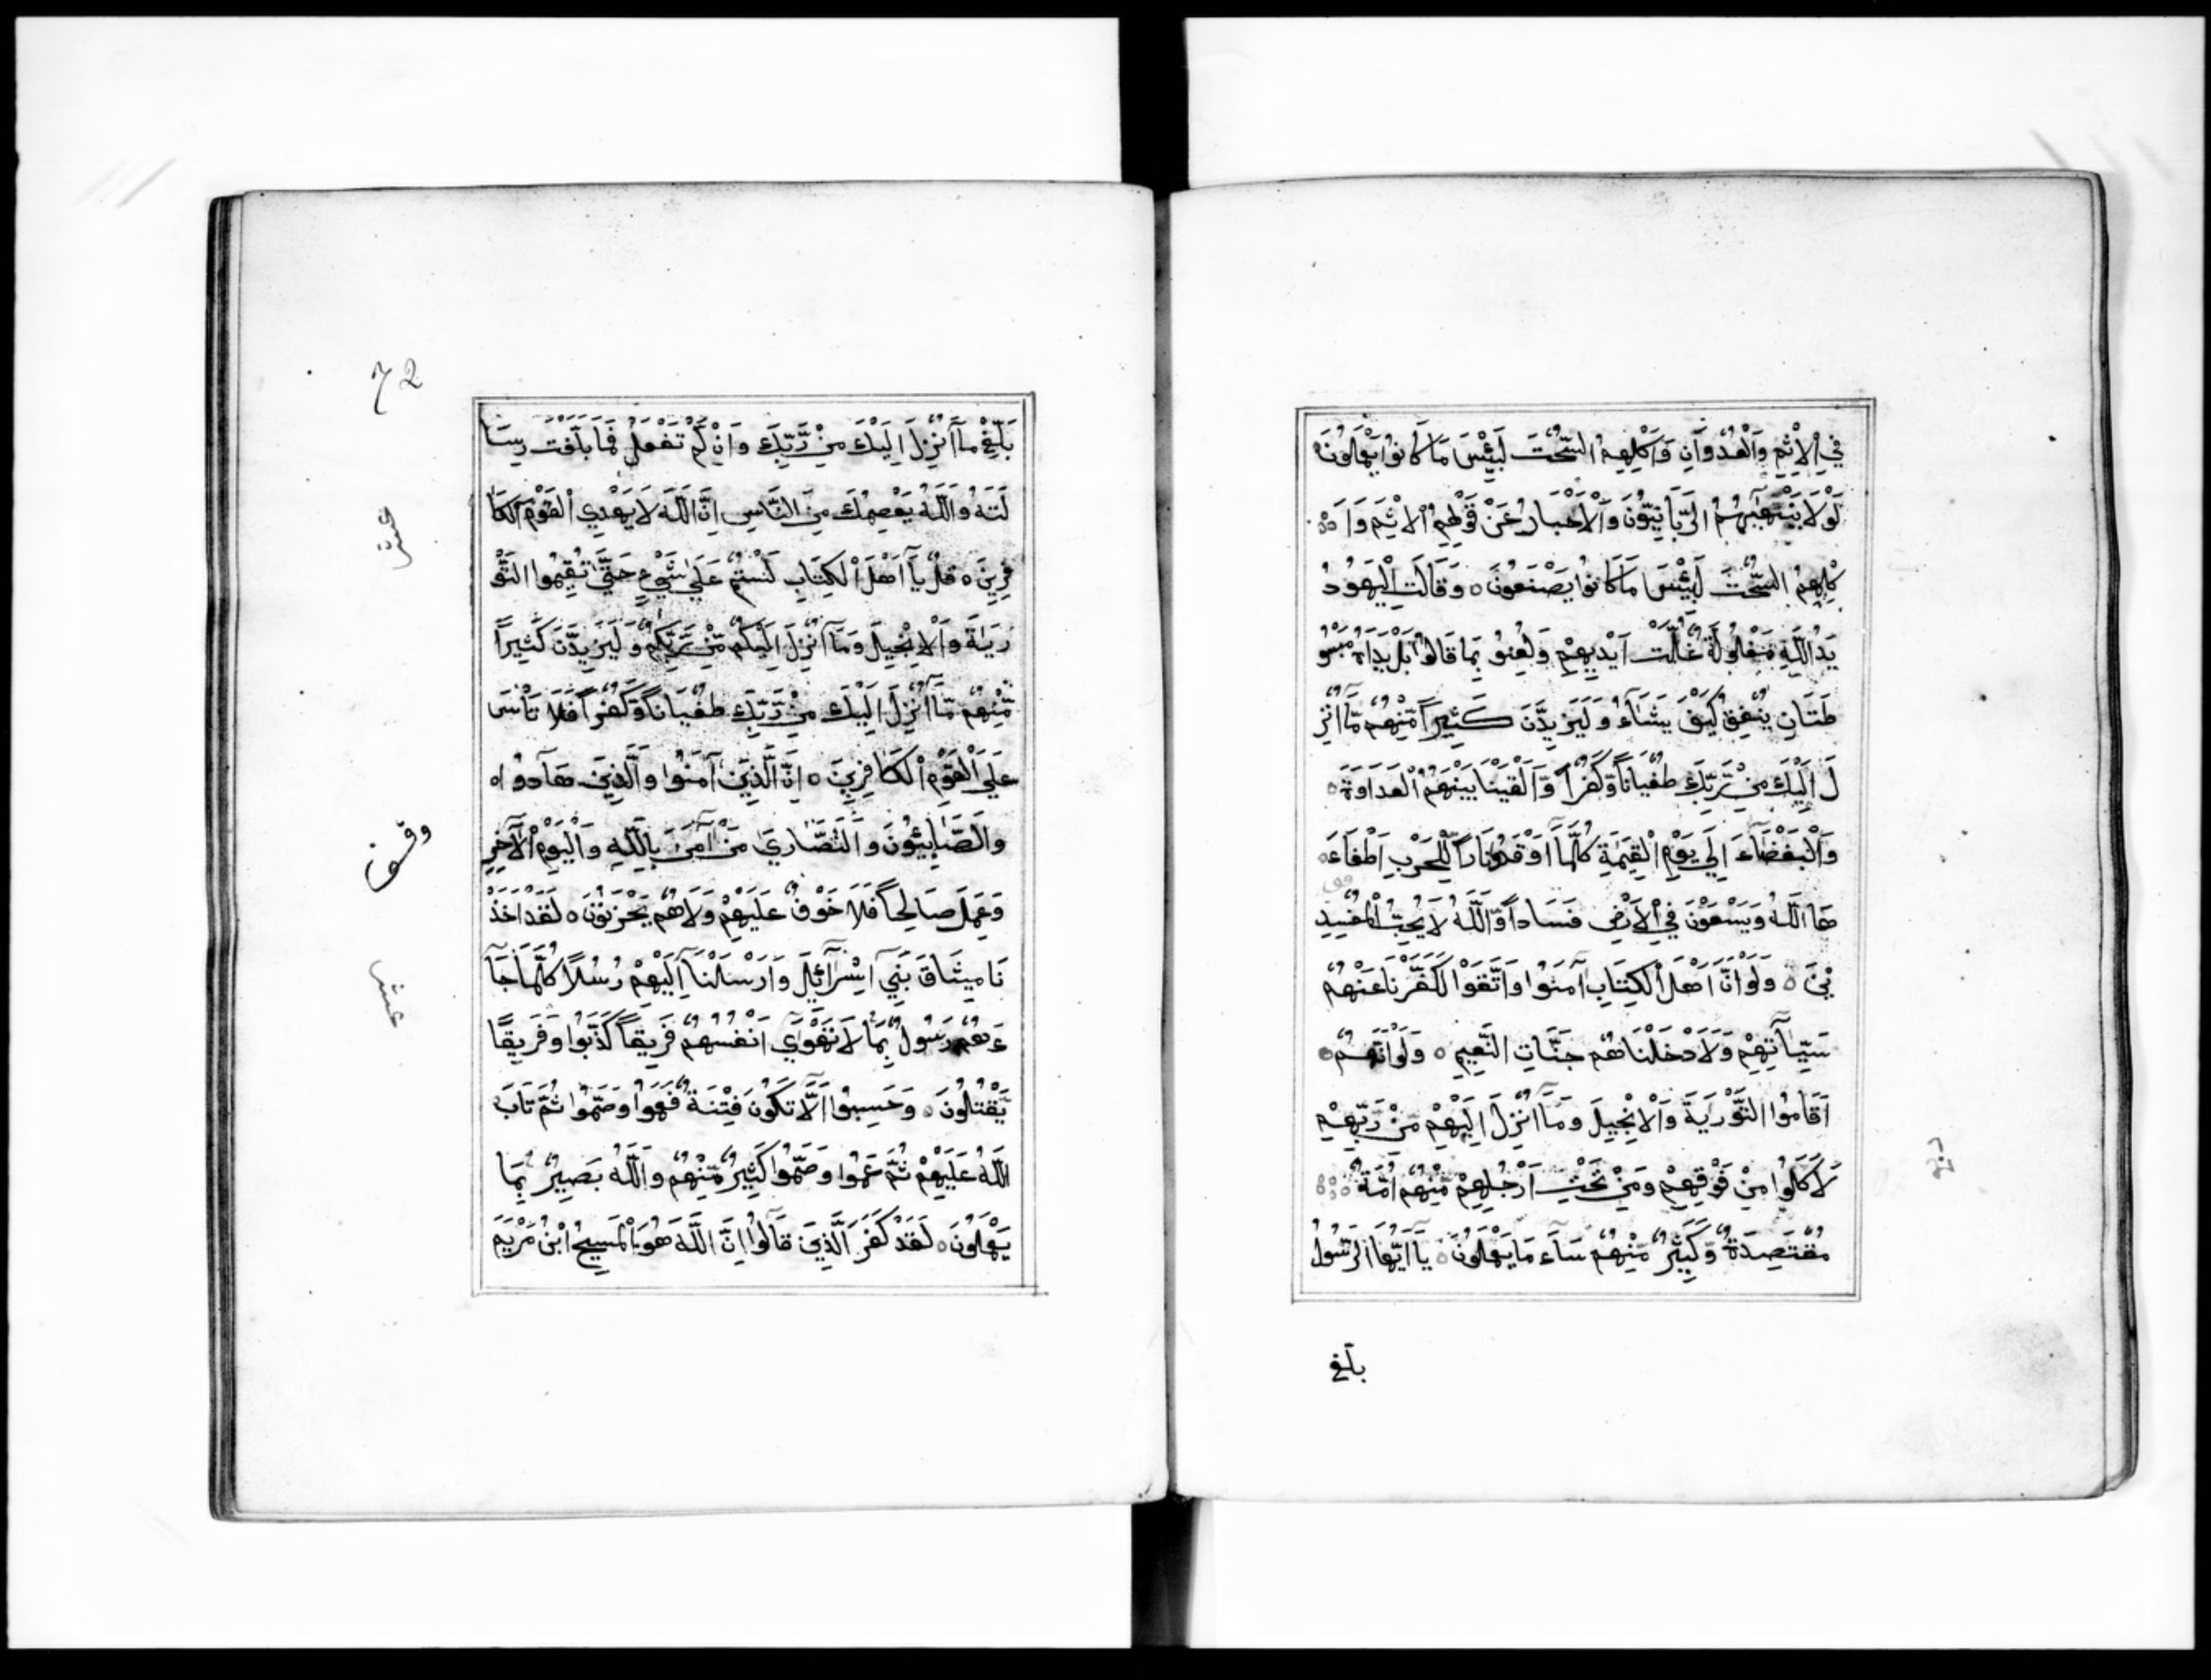 فِي الْاِثْمِ وَالْعُدْوَانِ وَاَكْلِهِمُ السُّحْتَ لَبِئْسَ مَا كَانُوا يَعْمَلُونَ
لَوْلَا يَنْهٰهُمُ الرَّبَّانِيُّونَ وَالْاَحْبَارُ عَنْ قَوْلِهِمُ الْاِثْمَ وَاَ
كْلِهِمُ السُّحْتَ لَبِئْسَ مَا كَانُوا يَصْنَعُونَ ه وَقَالَتِ الْيَهُودُ
يَدُ اللّٰهِ مَغْلُولَةٌ غُلَّتْ اَيْدِيهِمْ وَلُعِنُو بِمَا قَالُوا بَلْ يَدَاهُ مَبْسُو
طَتَانِ يُنْفِقُ كَيْفَ يَشَآءُ وَلَيَزِيدَنَّ كَثِيراً مِّنْهُمْ مَّآ اُنْزِ
لَ اِلَيْكَ مِنْ رَّبِّكَ طُغْيَاناً وَّكُفْراً وَّاَلْقَيْنَا بَيْنَهُمُ الْعَدَاوَةَ
وَالْبَغْضَآءَ اِلَي يَوْمِ الْقِيٰمَةِ كُلَّمَآ اَوْقَدُوا نَاراً لِّلْحَرْبِ اَطْفَاَ
هَا اللّٰهُ وَيَسْعَوْنَ فِي الْاَرْضِ فَسَاداً وَّاللّٰهُ لَا يُحِبُّ الْمُفْسِدِ
يْنَ ه وَلَوْ اَنَّ اَهْلَ الْكِتَابِ آمَنُوا وَاتَّقَوْا لَكَفَّرْنَا عَنْهُمْ
سَيِّاٰتِهِمْ وَلَاَدْخَلْنَاهُمْ جَنَّاتِ النَّعِيمِ ه وَلَوْ اَنَّهُمْ
اَقَامُوا التَّوْرَيٰةَ وَالْاِنْجِيلَ وَمَآ اُنْزِلَ اِلَيْهِمْ مِّنْ رَّبِّهِمْ
لَاَكَلُوا مِنْ فَوْقِهِمْ وَمِنْ تَحْتِ اَرْجُلِهِمْ مِّنْهُمْ اُمَّةٌ
مُّقْتَصِدَةٌ وَّكَثِيرٌ مِّنْهُمْ سَآءَ مَا يَعْمَلُونَ ه يَآ اَيُّهَا الرَّسُولُ
بلّغ
72
بَلِّغْ مَآ اُنْزِلَ اِلَيْكَ مِنْ رَّبِّكَ وَاِنْ لَّمْ تَفْعَلْ فَمَا بَلَّغْتَ رِسَا
لَتَهُ وَاللّٰهُ يَعْصِمُكَ مِنَ النَّاسِ اِنَّ اللّٰهَ لَا يَهْدِي الْقَوْمَ الْكَا
فِرِينَ ه قُلْ يَآ اَهْلَ الْكِتَابِ لَسْتُمْ عَلَي شَيْءٍ حَتَّي تُقِيمُوا التَّوْ
رَيٰةَ وَالْاِنْجِيلَ وَمَآ اُنْزِلَ اِلَيْكُمْ مِّنْ رَّبِّكُمْ وَلَيَزِيدَنَّ كَثِيراً
مِّنْهُمْ مَّآ اُنْزِلَ اِلَيْكَ مِنْ رَّبِّكَ طُغْيَاناً وَّكُفْراً فَلَا تَاْسَ
عَلَي الْقَوْمِ الْكَافِرِينَ ه اِنَّ الَّذِينَ آمَنُوا وَالَّذِينَ هَادُوا
وَالصَّابِئُونَ وَالنَّصَارَي مَنْ آمَنَ بِاللّٰهِ وَالْيَوْمِ الْآخِرِ
وَعَمِلَ صَالِحاً فَلَا خَوْفٌ عَلَيْهِمْ وَلَا هُمْ يَحْزَنُونَ ه لَقَدْ اَخَذْ
نَا مِيثَاقَ بَنِي اِسْرَآئِيلَ وَاَرْسَلْنَآ اِلَيْهِمْ رُسُلاً كُلَّمَا جَآ
ءَهُمْ رَسُولٌ بِمَا لَا تَهْوَي اَنْفُسُهُمْ فَرِيقاً كَذَّبُوا وَفَرِيقاً
يَّقْتُلُونَ ه وَحَسِبُوا اَلَّا تَكُونَ فِتْنَةٌ فَعَمُوا وَصَمُّوا ثُمَّ تَابَ
اللّٰهُ عَلَيْهِمْ ثُمَّ عَمُوا وَصَمُّوا كَثِيرٌ مِّنْهُمْ وَاللّٰهُ بَصِيرٌ بِمَا
يَعْمَلُونَ ه لَقَدْ كَفَرَ الَّذِينَ قَالُوا اِنَّ اللّٰهَ هُوَ الْمَسِيحُ ابْنُ مَرْيَمَ
عشر
عشر